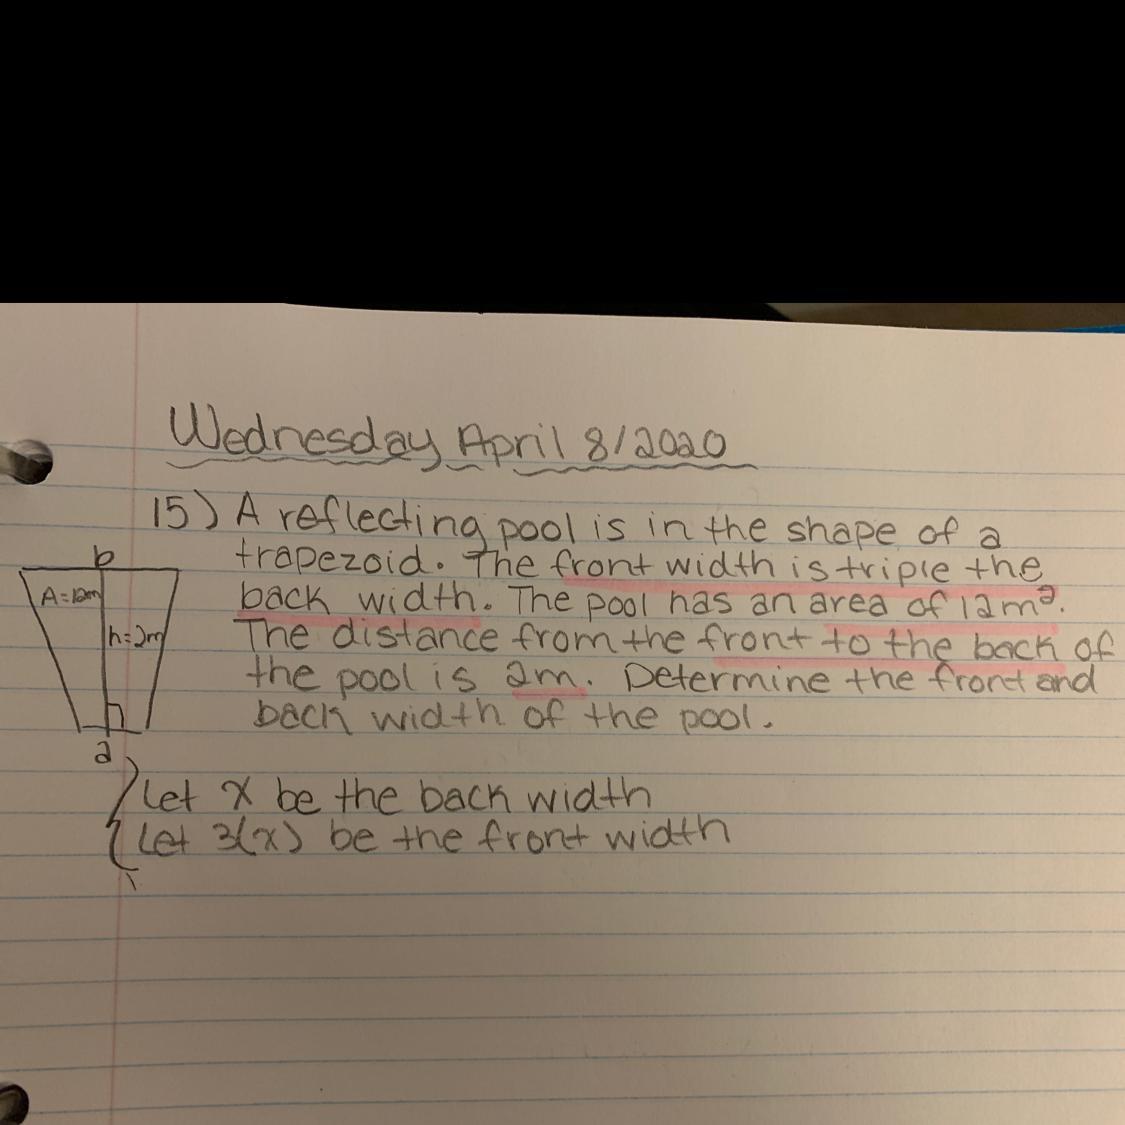 Wednesday April 8/2020
15) A reflecting pool is in the shape of a
trapezoid. The front width is triple the
back width. The pool has an area of 12m².
The distance from the front to the back of
the pool is 2m. Determine the front and
back width of the pool.
b
A=12m
h=2m
a
Let x be the back width
Let 3(x) be the front width